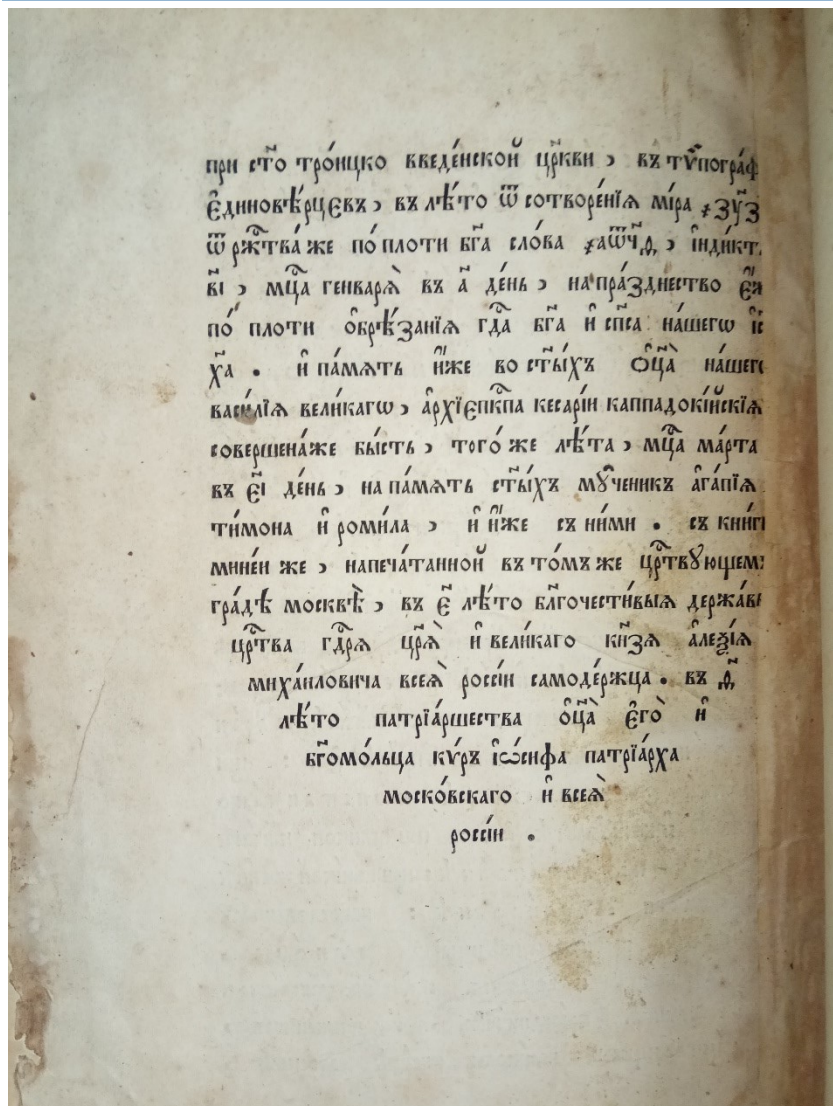 при ст҃о тро́ицко введе́нской цр҃кви , въ тѵпогра́ф
є҆диновѣ́рцєвъ , въ лѣ́то ѿ сотворе́нїѧ мі́ра ҂зу҃з
ѿ рж҇тва́ же по́ плоти бг҃а сло́ва ҂аѿ҃чѳ , і҆нді́кт
в҃і , мц҇а генварѧ̀ въ а҃ де́нь , на пра́зднество
по́ плоти ѻ҆брѣ́занїѧ гд҇а бг҃а и҆ сп҃са на́шегѡ і҆с
хр҇а . и҆ па́мѧть и҆́же во ст҃ы́хъ ѻ҆ц҃а̀ на́шегѡ
васи́лїѧ вели́кагѡ , а҆рхїєпк҇па кесарі́и каппадокі́йскїѧ
совершена́же бы́сть , того́ же лѣ́та , мц҇а ма́рта
въ є҃і де́нь , на па́мѧть ст҃ы́хъ мꙋ́ченикъ а҆га́пїѧ
ти́мона и҆ роми́ла , и҆ и҆́же съ ни́ми . съ кни́ги
мине́и же , напеча́танной въ то́мъ же цр҇твꙋющемъ
гра́дѣ москвѣ̀ , въ є҃ лѣ́то бл҃гочести́выѧ держа́вы
цр҇тва гд҇рѧ цр҃ѧ̀ и҆ вели́каго кн҃зѧ а҆леѯі́ѧ
миха́иловича всеѧ̀ россі́и самоде́ржца . въ ѳ҃
лѣ́то патрїа́ршества ѻ҆ц҃а̀ є҆гѡ̀ и҆
бг҃омо́льца кѵ́ръ і҆ѡ́сифа патрїа́рха
моско́вскаго и҆ всеѧ̀
россі́и .